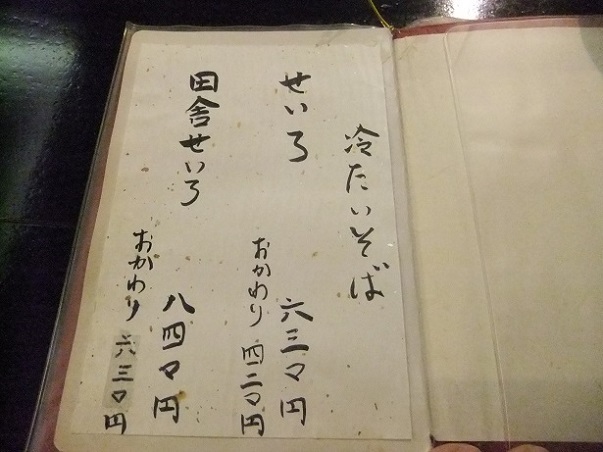 冷たいそば
せいろ 六三〇円
おかわり 四二〇円
田舎せいろ 八四〇円
おかわり 六三〇円